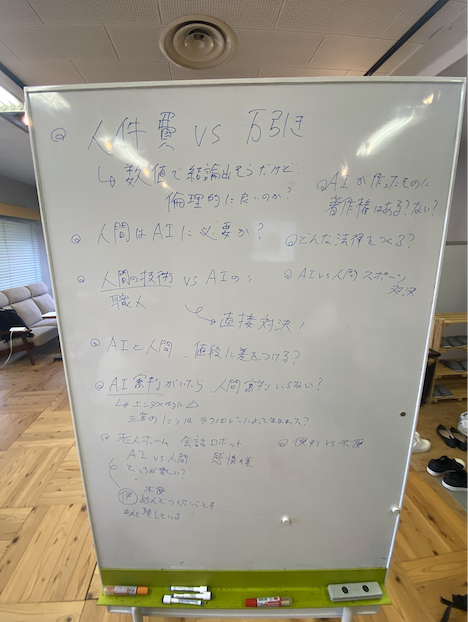 人件費 vs 万引き
↳ 数値で結論出そうだけど
倫理的に良いのか?
人間はAIに必要か?
人間の技術 vs AIの
職人
直接対決!
AIと人間、値段に差をつける?
AI審判がいたら、人間審判いらない?
↳エンタメ的に△
老人ホーム 会話ロボット
AI vs 人間 感情の差
どっちが楽しい?
不便
AIが作ったものに
著作権はある?ない?
どんな法律をつくる?
AI vs 人間 スポーツ
対決
便利 vs 不便